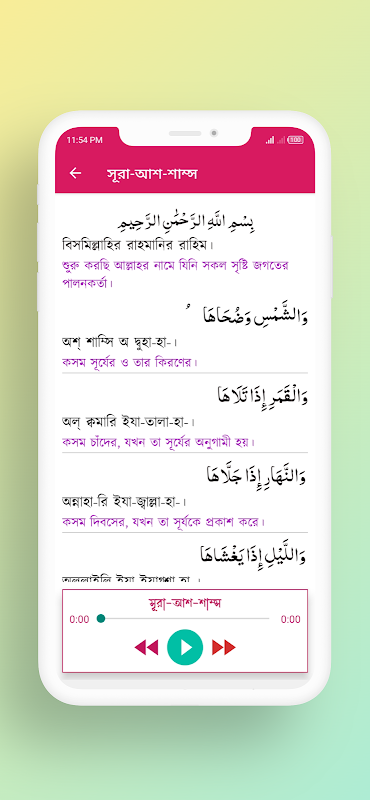 11:54 PM
100
সূরা-আশ-শাম্স
بِسْمِ اللَّهِ الرَّحْمَٰنِ الرَّحِيمِ
বিসমিল্লাহির রাহমানির রাহিম।
শুরু করছি আল্লাহর নামে যিনি সকল সৃষ্টি জগতের
পালনকর্তা।
وَالشَّمْسِ وَضُحَاهَا
অশ্ শাম্সি অ দ্বুহা-হা-।
কসম সূর্যের ও তার কিরণের।
وَالْقَمَرِ إِذَا تَلَاهَا
অল্ ক্বমারি ইযা-তালা-হা-।
কসম চাঁদের, যখন তা সূর্যের অনুগামী হয়।
وَالنَّهَارِ إِذَا جَلَّاهَا
অন্নাহা-রি ইযা-জ্বাল্লা-হা-।
কসম দিবসের, যখন তা সূর্যকে প্রকাশ করে।
وَاللَّيْلِ إِذَا يَغْشَاهَا
সূরা-আশ-শাম্স
0:00 0:00